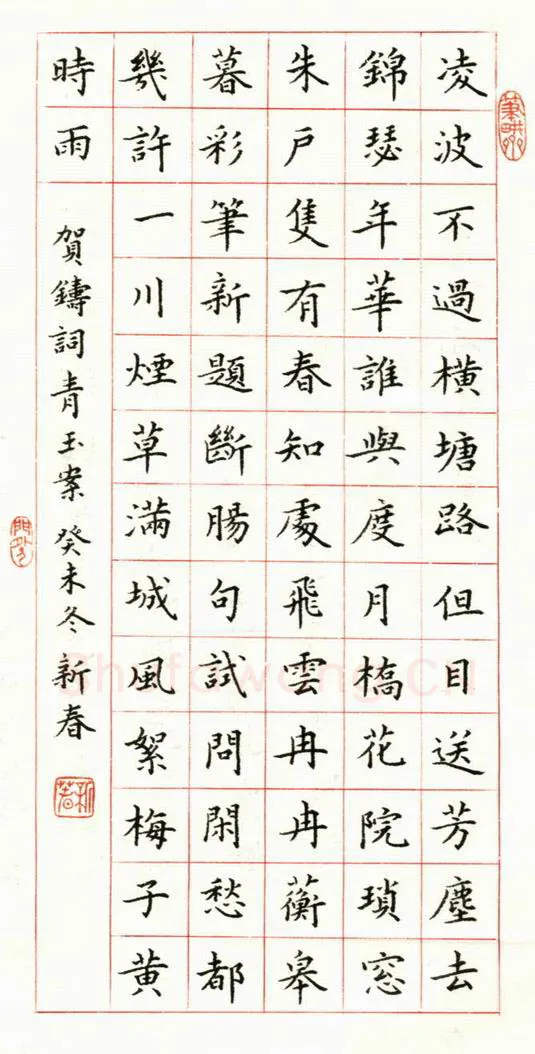 凌波不過橫塘路但目送芳塵去
錦瑟年華誰與度月橋花院瑣窓
朱戶隻有春知處飛雲冉冉蘅皋
暮彩筆新題斷腸句試問閑愁都
幾許一川煙草滿城風絮梅子黄
時雨
賀鑄詞青玉案癸未冬新春
Shufawang.CN